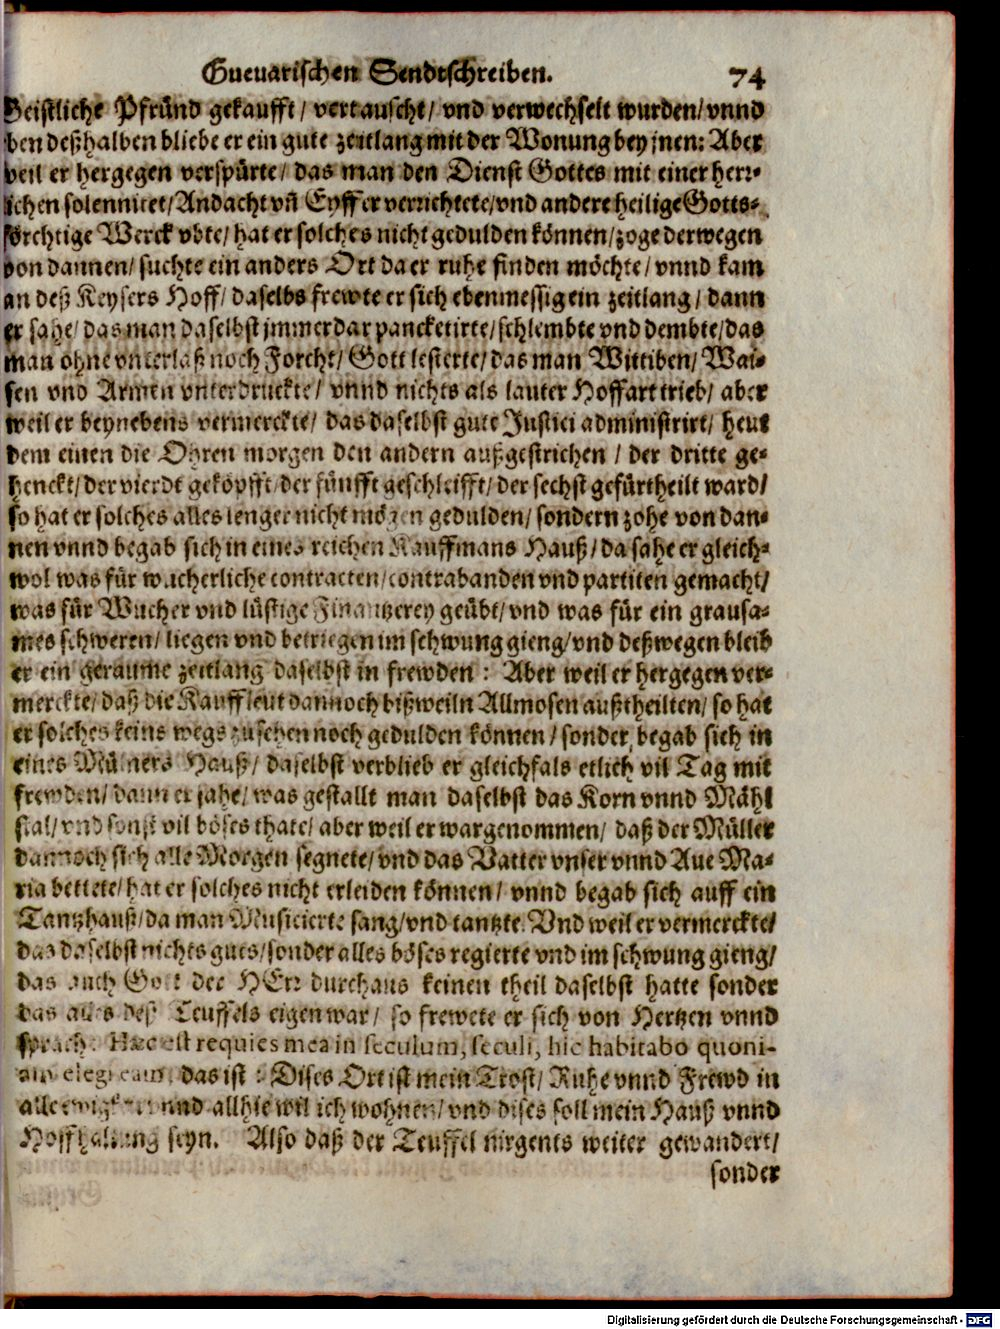 Guevarischen Sendtschreiben. 74
Geistliche Pfründ gekaufft/ vertauscht/ vnd verwechselt wurden/ vnnd
ben deßhalben bliebe er ein gute zeitlang mit der Wonung bey jnen: Aber
weil er hergegen verspürte/ das man den Dienst Gottes mit einer herr-
lichen solennitet/ Andacht vñ Eyffer verrichtete/ vnd andere heilige Gotts-
förchtige Werck vbte/ hat er solches nicht gedulden können/ zoge derwegen
von dannen/ suchte ein anders Ort da er ruhe finden möchte/ vnnd kam
an deß Keysers Hoff/ daselbs frewte er sich ebenmessig ein zeitlang/ dann
er sahe/ das man daselbst jmmerdar pancketirte/ schlembte vnd dembte/ das
man ohne vnterlaß noch Forcht/ Gott lesterte/ das man Wittiben/ Wai-
sen vnd Armen vnterdruckte/ vnnd nichts als lauter Hoffart trieb/ aber
weil er beynebens vermerckte/ das daselbst gute Justici administrirt/ heut
dem einen die Ohren morgen den andern außgestrichen/ der dritte ge-
henckt/ der vierdt geköpfft/ der fünfft geschleifft/ der sechst gefürtheilt ward/
so hat er solches alles lenger nicht mögen gedulden/ sondern zohe von dan-
nen vnnd begab sich in eines reichen Kauffmans Hauß/ da sahe er gleich-
wol was für wucherliche contracten/ contrabanden vnd partiten gemacht/
was für Wucher vnd lüstige Finantzerey geübt/ vnd was für ein grausa-
mes schweren/ liegen vnd betriegen im schwung gieng/ vnd deßwegen bleib
er ein geraume zeitlang daselbst in frewden: Aber weil er hergegen ver-
merckte/ daß die Kauffleut dannoch bißweiln Allmosen außtheilten/ so hat
er solches keins wegs zusehen noch gedulden können/ sonder begab sich in
eines Müllners Hauß/ daselbst verblieb er gleichfals etlich vil Tag mit
frewden/ dann er sahe/ was gestallt man daselbst das Korn vnnd Mähl
stal/ vnd sonst vil böses thate/ aber weil er wargenommen/ daß der Müller
dannoch sich alle Morgen segnete/ vnd das Vatter vnser vnnd Aue Ma-
ria bettete/ hat er solches nicht erleiden können/ vnnd begab sich auff ein
Tantzhauß/ da man Musicierte sang/ vnd tantzte. Vnd weil er vermerckte/
das daselbst nichts guts/ sonder alles böses regierte vnd im schwung gieng/
das auch Gott der HErr durchaus keinen theil daselbst hatte sonder
das alles deß Teuffels eigen war/ so frewete er sich von Hertzen vnnd
sprach: Hæc est requies mea in seculum, seculi, hic habitabo quoni-
am elegi eam, das ist: Dises Ort ist mein Trost/ Ruhe vnnd Frewd in
alle ewigkeit vnnd allhie wil ich wohnen/ vnd dises soll mein Hauß vnnd
Hoffhaltung seyn. Also daß der Teuffel nirgents weiter gewandert/
sonder
Digitalisierung gefördert durch die Deutsche Forschungsgemeinschaft - DFG